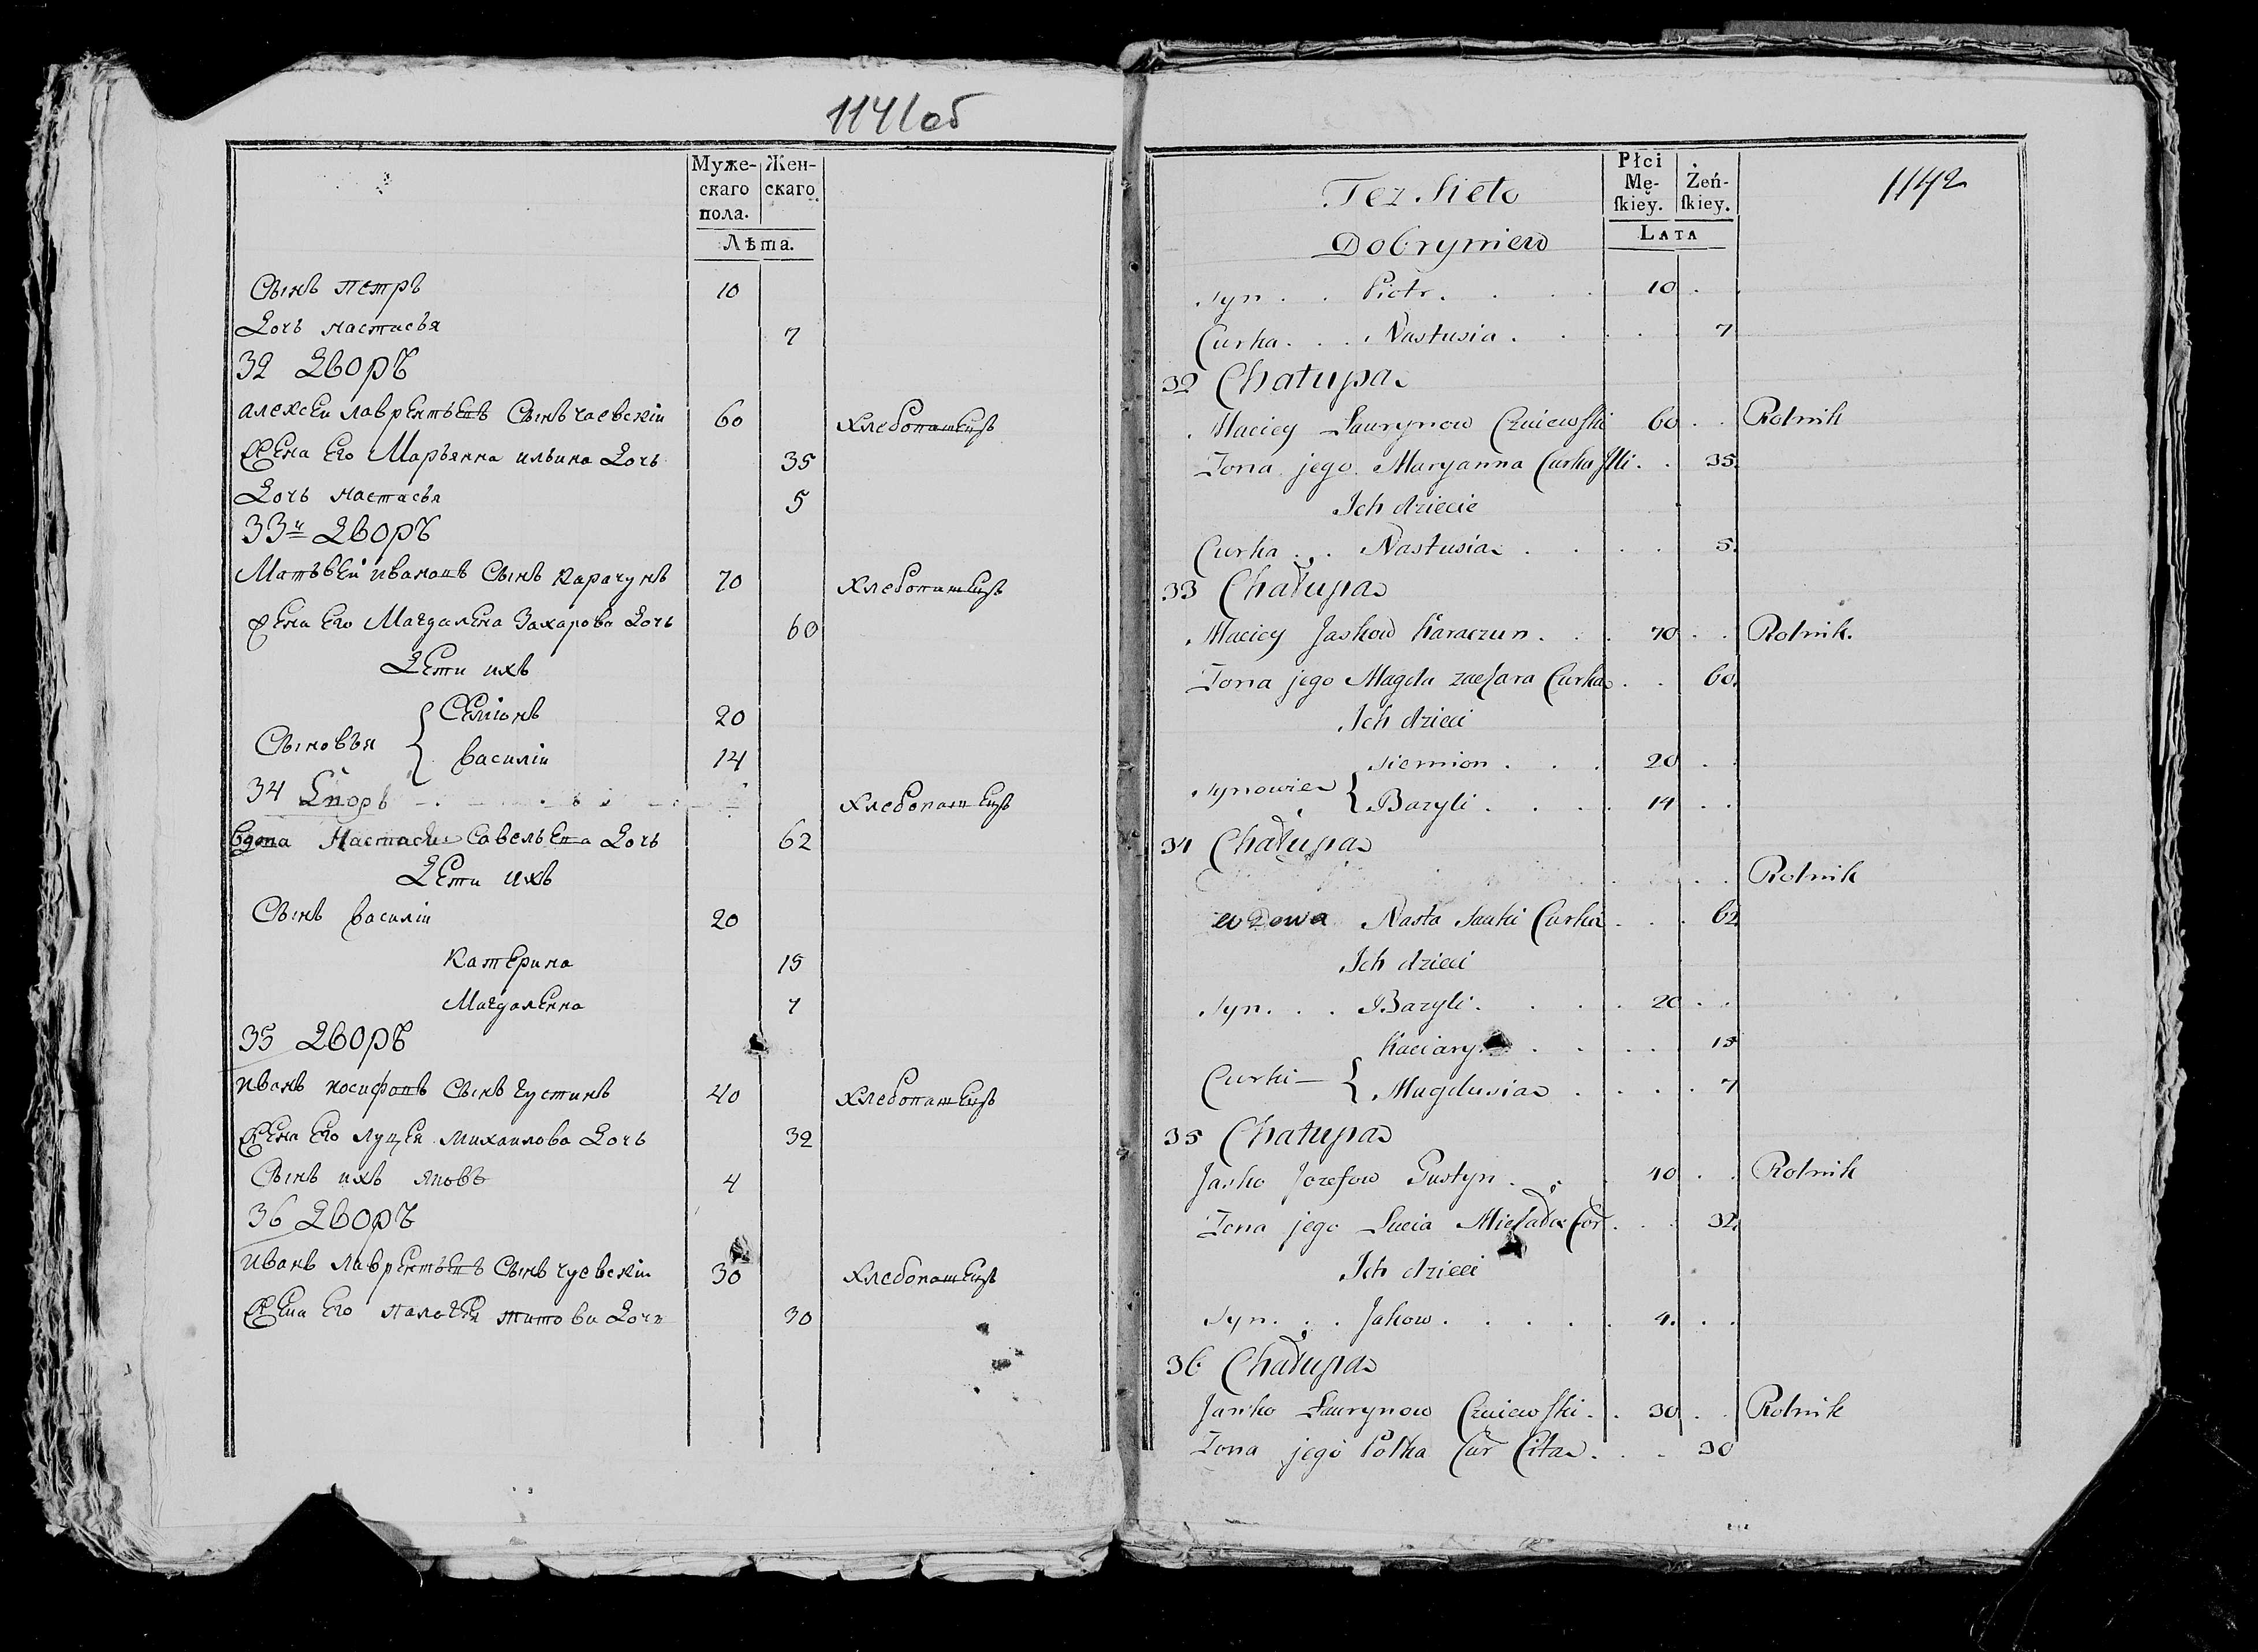 1141об
Муже-
скаго
пола.
Жен-
скаго
Лѣта.
Сынъ петръ 10
Дочь настасья 7
32 Дворъ
алексеи лаврентьевъ Сынъ чаевскіи 60 хлебопашецъ
Жена Его Марьянна ильина Дочь 35
Дочь настасья 5
33й Дворъ
Матъвеи ивановъ Сынъ карачунъ 70 хлебопашецъ
Жена Его Магдалена Захарова Дочь 60
Дети ихъ
Сыновья { Семіонъ 20
василіи 14
34 Дворъ хлебопашецъ
вдова Настасья Савельева Дочь 62
Дети ихъ
Сынъ василіи 20
Катерина 15
Магдаленна 7
35 Дворъ
иванъ иосифовъ Сынъ густинъ 40 хлебопашецъ
Жена Его луцея михаилова Дочь 32
Сынъ ихъ яковъ 4
36 Дворъ
иванъ лаврентьевъ Сынъ чуевскіи 30 хлебопашецъ
Жена Его палагея титова Дочь 30
1142
Tez Sieło
Dobryniew
Płci
Mę-
ſkiey.
Żeń-
ſkiey.
LATA
Syn . . Piotr . . . 10 . .
Curka . . . Nastusia . . . 7
32 Chałupa
Maciey Laurynow Czuiewſki 60 . . Rolnik
Zona jego Maryanna Curka Illi . . 35.
Ich dziecie
Curka . . . Nastusia . . . . 5.
33 Chałupa
Maciey Jaskow Karaczun . . . 70 . . Rolnik.
Zona jego Magda zachara Curka . . 60.
Ich dzieci
Synowie { Siemion . . . 20 . .
Bazyli . . . . 14 . .
34 Chałupa
Rolnik
wdowa Nasta Sauki Curka . . . 62
Ich dzieci
Syn . . . Bazyli . . . . 20 . .
Curki — { Kaciary . . . . 15
Magdusia . . . . 7
35 Chałupa
Jasko Jozefow Gustyn . . . 40 . . Rolnik
Zona jego Lucia Michała Cor . . . 32.
Ich dzieci
Syn . . . Jakow . . . . . 4. . .
36 Chałupa
Jasko Laurynow Czuiewſki . . 30 . . Rolnik
Zona jego Połka Cur Cita . . . 30